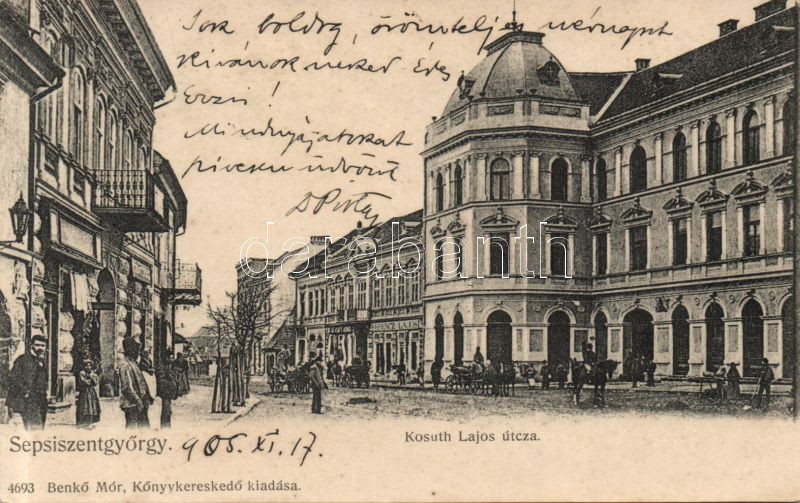 Sok boldog, örömteljes névnapot
kivánok neked édes
Erzsi!
Mindnyájatokat
szivesen üdvözöl
darabanth
Sepsiszentgyőrgy. 905. XI. 17.
Kosuth Lajos útcza.
4693 Benkő Mór, Kőnyvkereskedő kiadása.